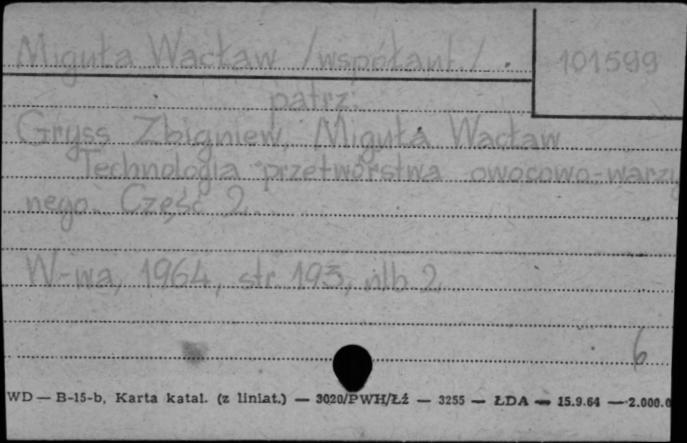 Miguła Wacław /współaut./.
101599
patrz:
Gryss Zbigniew, Miguła Wacław
Technologia przetwórstwa owocowo-warzy
nego. Część 2.
W-wa, 1964, str. 193, nlb 2
6
WD — B-15-b, Karta katal. (z liniat.) — 3020/PWH/Łź — 3255 — ŁDA — 15.9.64 — 2.000.0